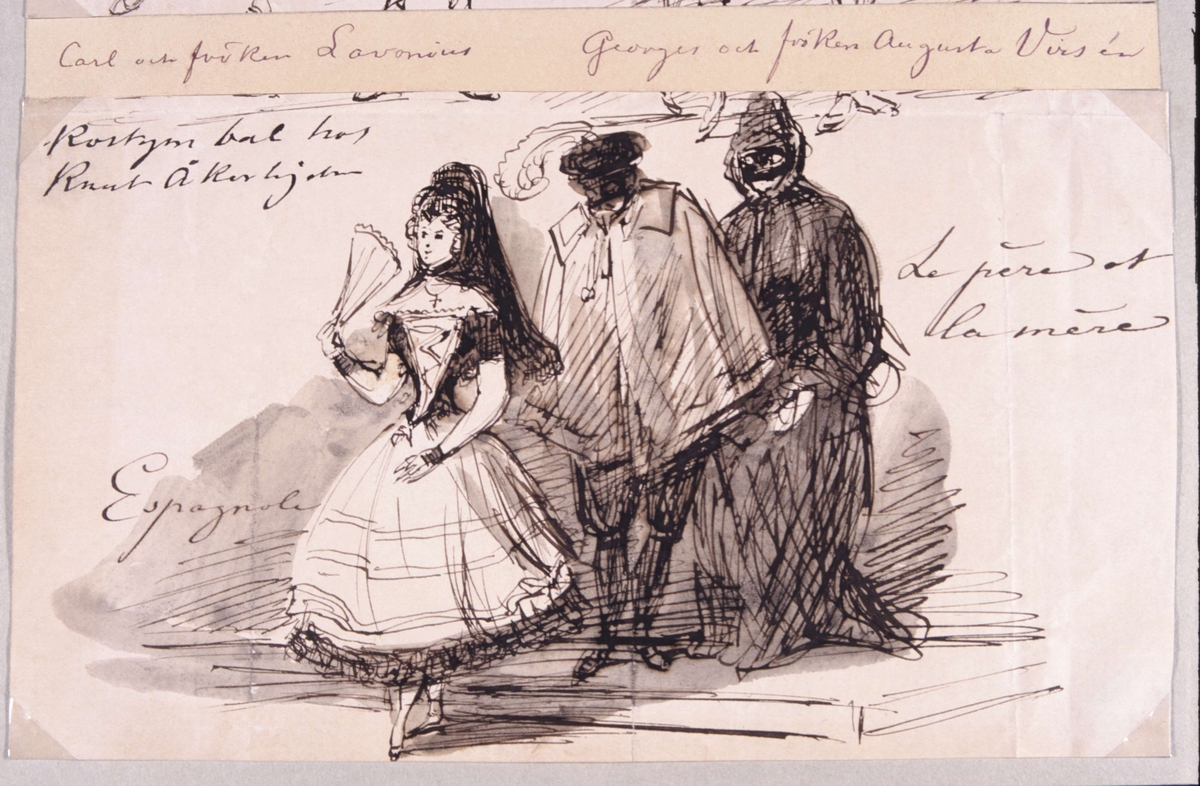 Carl och fröken Lavonius
Georges och fröken Augusta Virsén
Kostym bal hos
Knut Åkerhjelm
Le père et
la mère
Espagnole